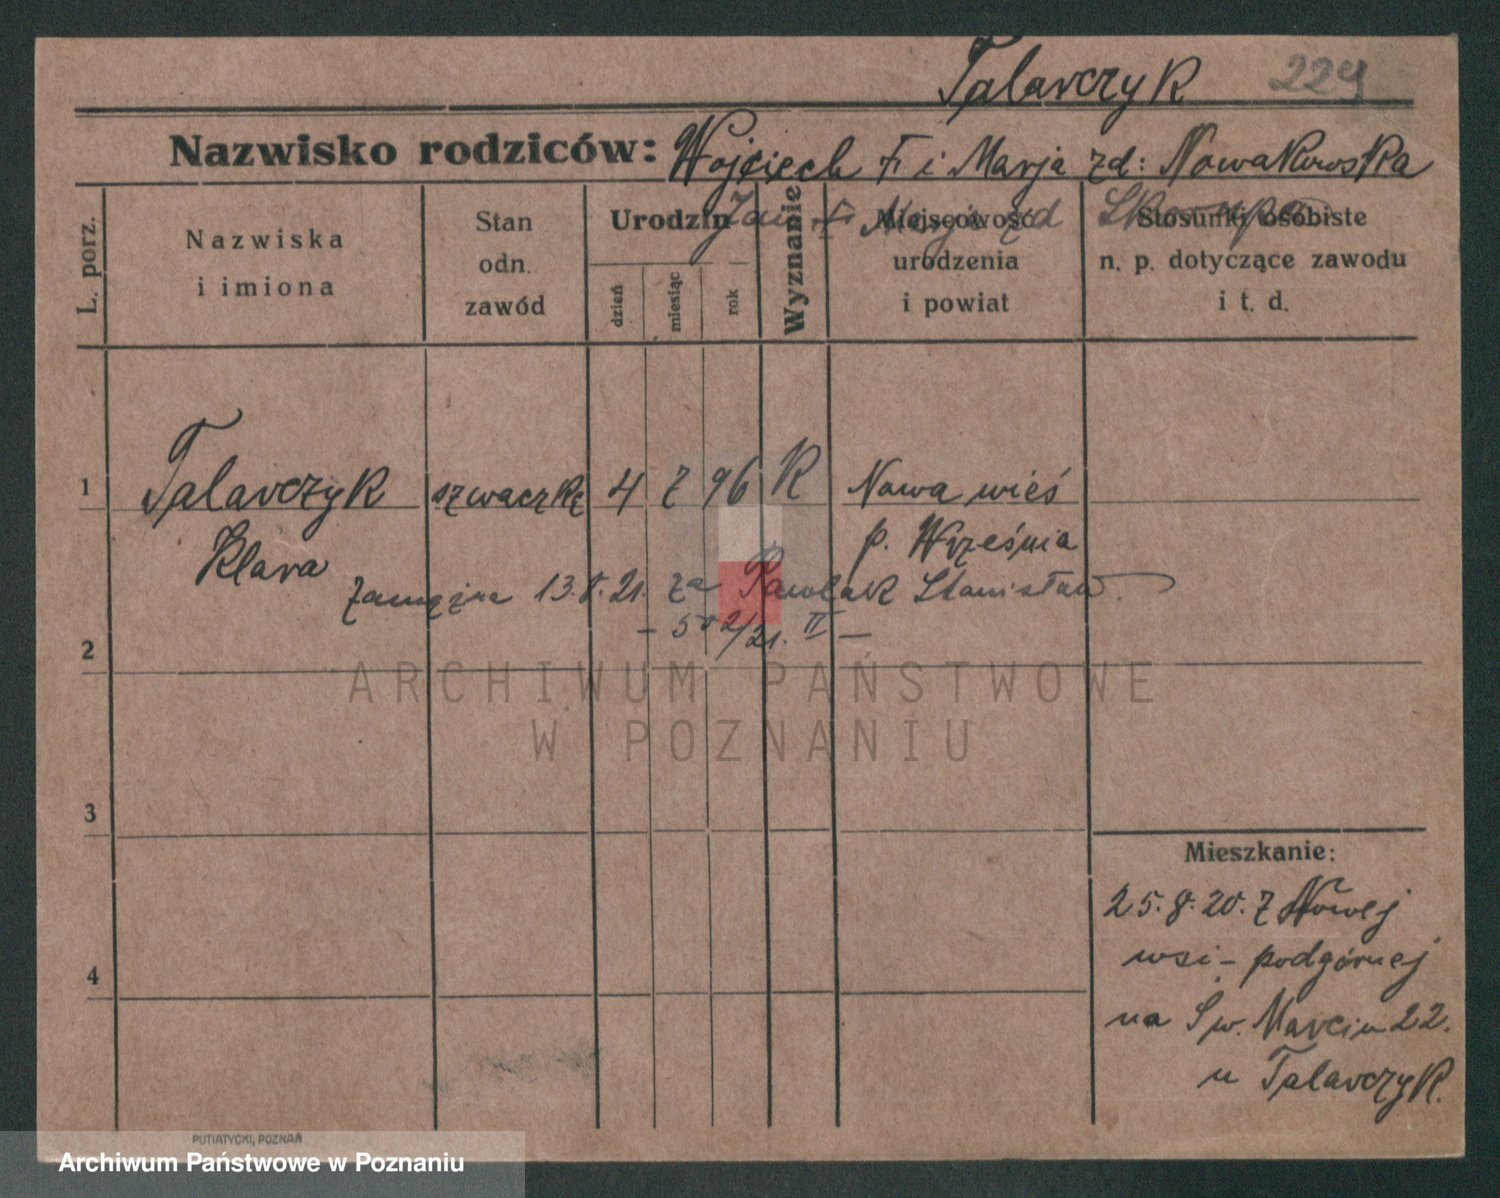 Talarczyk 229
Nazwisko rodziców: Wojciech † i Marja zd: Nowakowska
Jan † Marja zd Skorupa
L. porz.
Nazwiska
i imiona
Stan
odn.
zawód
Urodzin
dzień
miesiąc
rok
Wyznanie
Miejscowość
urodzenia
i powiat
Stosunki osobiste
n. p. dotyczące zawodu
i t. d.
1 Talarczyk szwaczka 4 7 96 K Nowa wieś
Klara p. Września
Zamężna 13.8.21. za Pawlak Stanisław.
- 502/21. II -
2
3
4
Mieszkanie:
25.8.20. Z Nowej
wsi - podgórnej
na Św. Marcin 22.
u Talarczyk.
PUTIATYCKI, POZNAŃ
ARCHIWUM PAŃSTWOWE
W POZNANIU
Archiwum Państwowe w Poznaniu